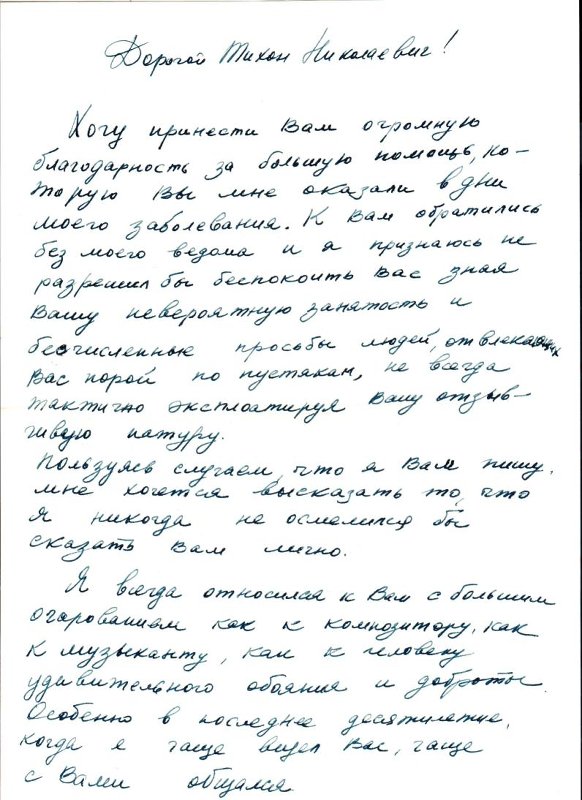 Дорогой Тихон Николаевич!
Хочу принести Вам огромную
благодарность за большую помощь, ко-
торую Вы мне оказали в дни
моего заболевания. К Вам обратились
без моего ведома и я признаюсь не
разрешил бы беспокоить Вас зная
Вашу невероятную занятость и
бесчисленные просьбы людей, отвлекающих
Вас порой по пустякам, не всегда
тактично эксплоатируя Вашу отзыв-
чивую натуру.
Пользуясь случаем, что я Вам пишу.
мне хочется высказать то, что
я никогда не осмелился бы
сказать Вам лично.
Я всегда относился к Вам с большим
очарованием как к композитору, как
к музыканту, как к человеку
удивительного обаяния и доброты.
Особенно в последнее десятилетие,
когда я чаще видел Вас, чаще
с Вами общался.